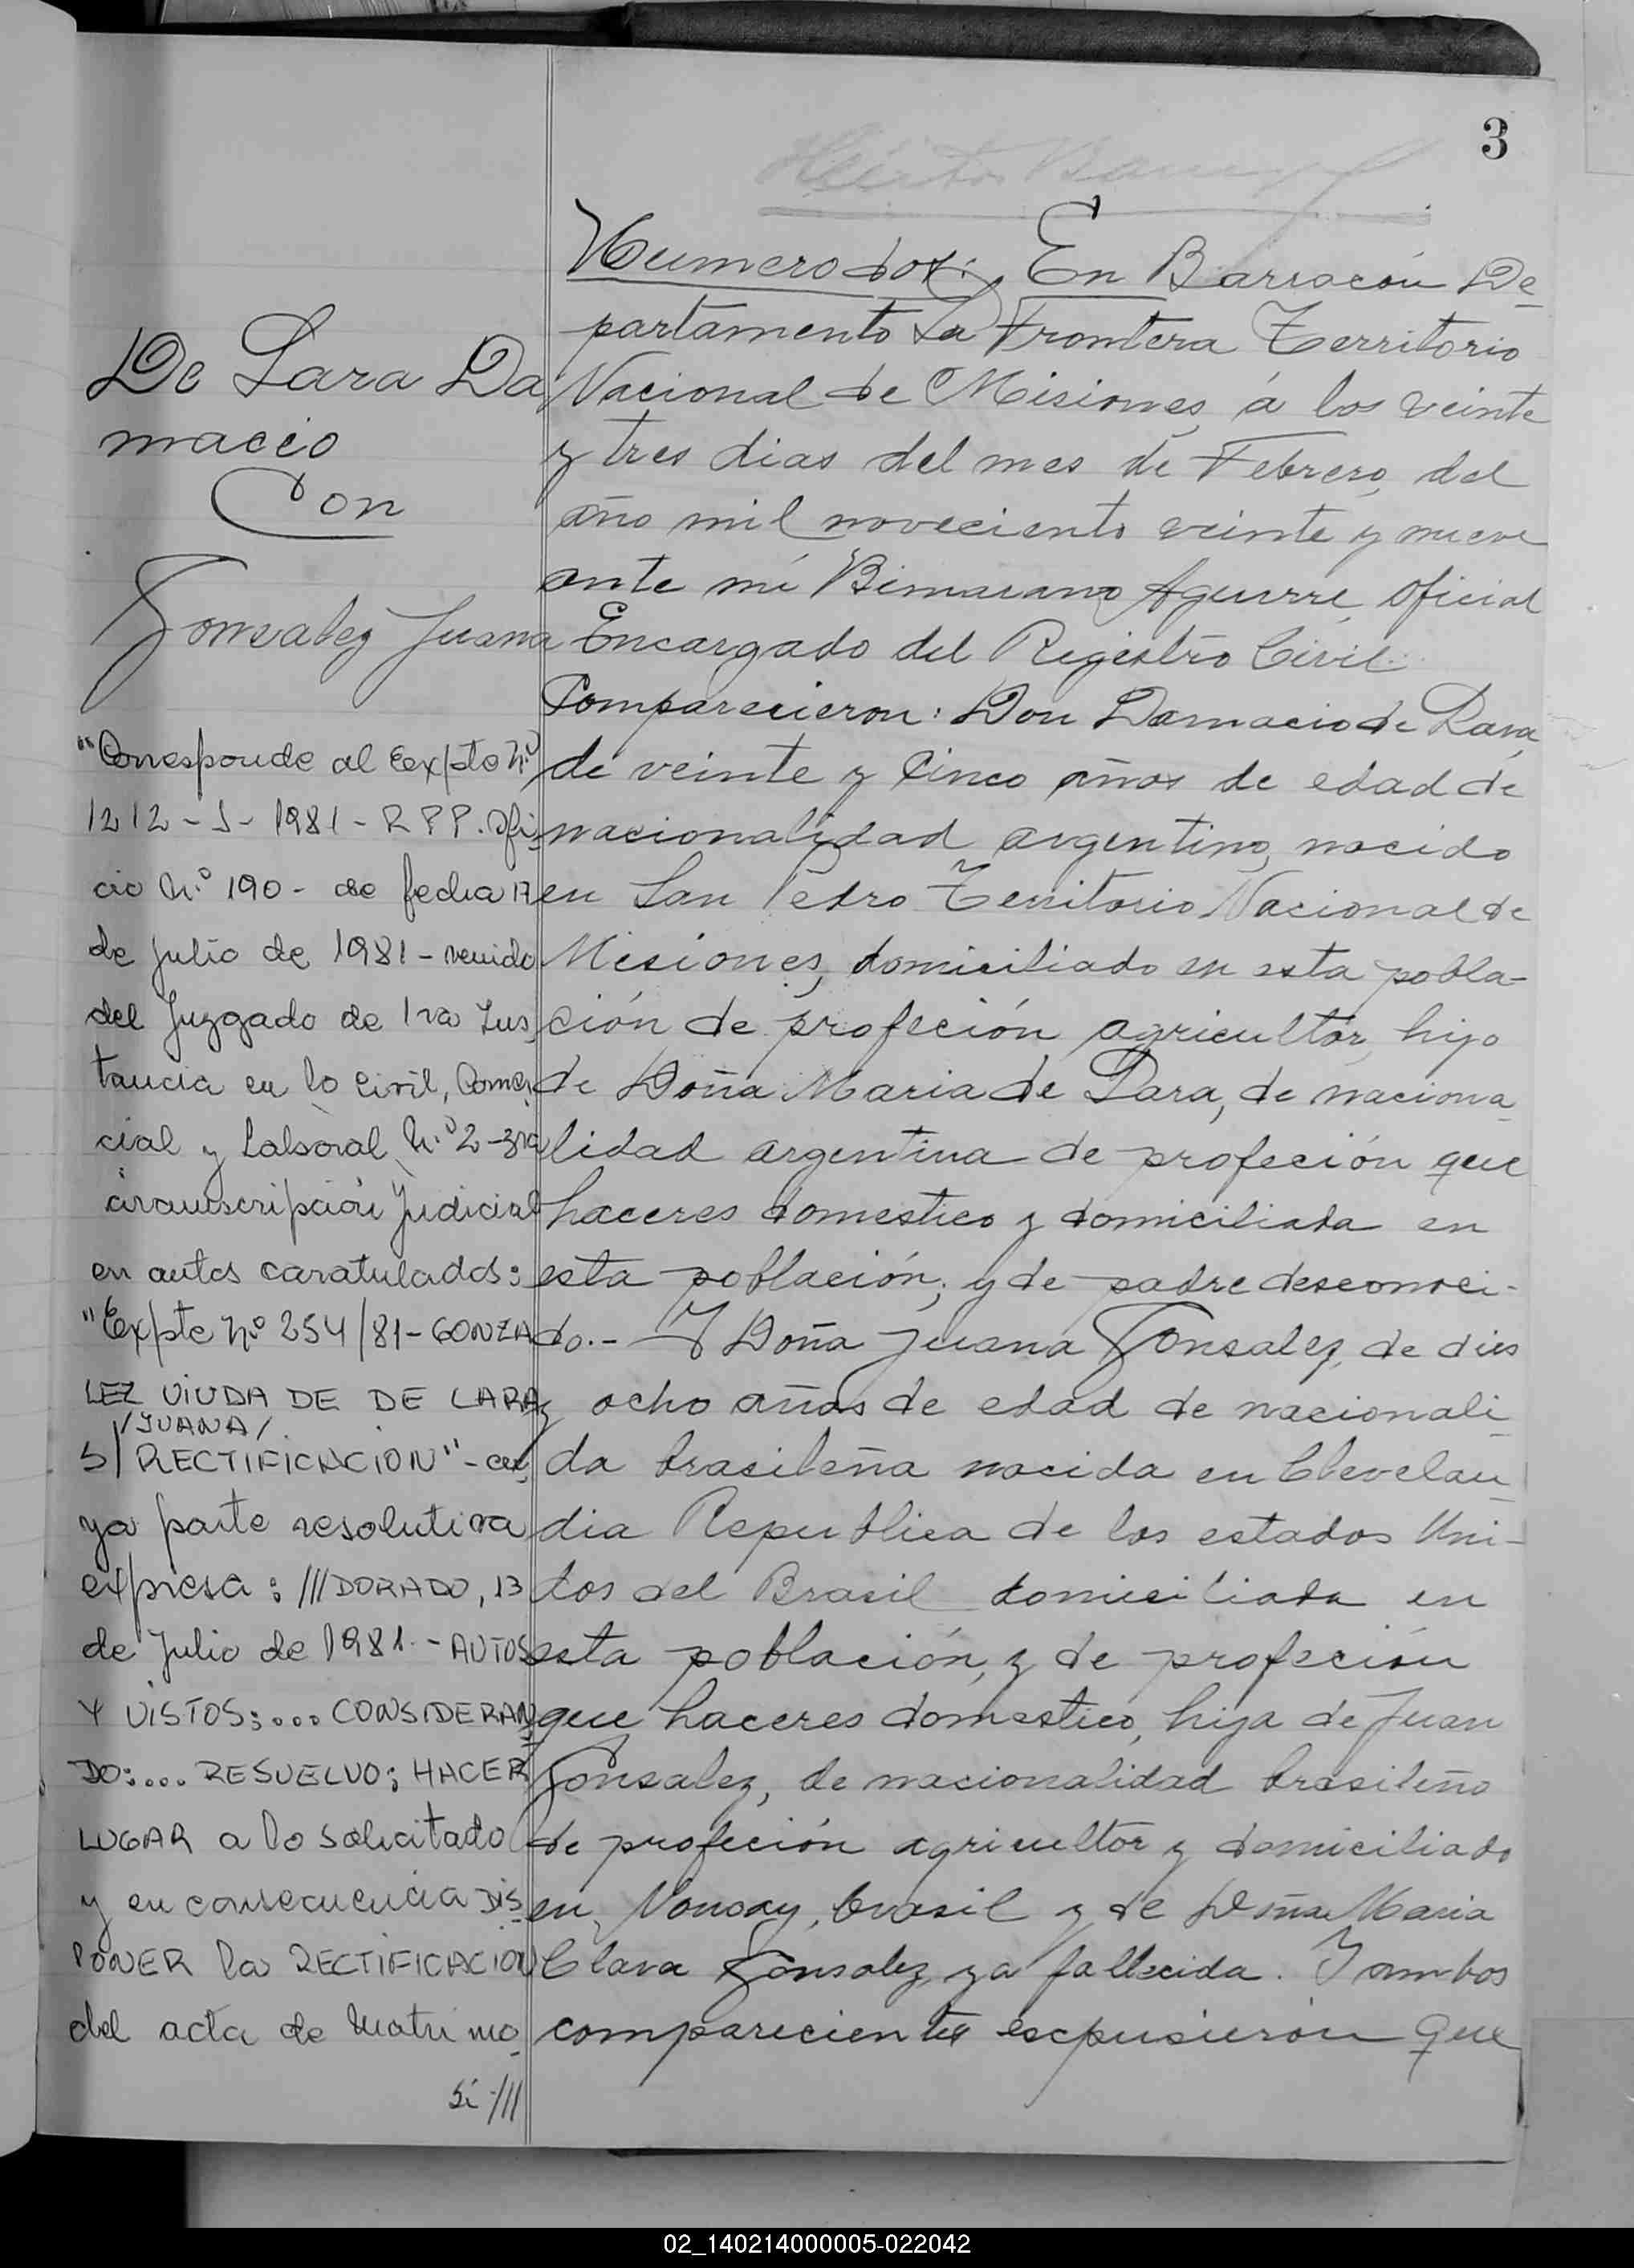 3
Numero dos: En Barracón De
partamento La Frontera Territorio
Nacional de Misiones, á los veinte
y tres dias del mes de Febrero, del
año mil noveciento veinte y nueve
ante mi Bimarano Aguirre, oficial
Encargado del Registro Civil
Comparecieron: Don Damacio de Lara,
de veinte y cinco años de edad de
nacionalidad argentino, nacido
en San Pedro Territorio Nacional de
Misiones, domiciliado en esta pobla-
ción de profeción agricultor, hijo
de Doña Maria de Lara, de naciona
lidad argentina de profeción que
haceres domestico y domiciliada en
esta población; y de padre desconoci-
do.- Y Doña Juana Gonsalez, de dies
y ocho años de edad de nacionali
da brasileña nacida en Clevelan
dia Republica de los estados Uni-
dos del Brasil domiciliada en
esta población, y de profeción
que haceres domestico, hija de Juan
Gonsalez, de nacionalidad brasileño
de profeción agricultor y domiciliado
en, Nonoay, brasil y de Doña Maria
Clara Gonsalez, ya fallecida. Y ambos
comparecientes escpusieron que
De Lara Da
macio
Con
Gonzalez Juana
"Corresponde al Expte Nº
1212-J-1981-RPP. Ofi
cio Nº 190- de fecha 17
de Julio de 1981-venido
del Juzgado de 1ra Ins
tancia en lo Civil, Comer
cial y Laboral Nº 2-3ra
circunscripción Judicial
en autos caratulados:
"Expte Nº 254/81-GONZA
LEZ VIUDA DE DE LARA
/JUANA/
S/ RECTIFICACION"-cu
ya parte resolutiva
expresa: ///DORADO, 13
de Julio de 1981.-AUTOS
Y VISTOS:... CONSIDERAN
DO:... RESUELVO; HACER
LUGAR a lo solicitado
y en consecuencia DIS
PONER la RECTIFICACION
del acta de Matrimo
Si-///
02_140214000005-022042